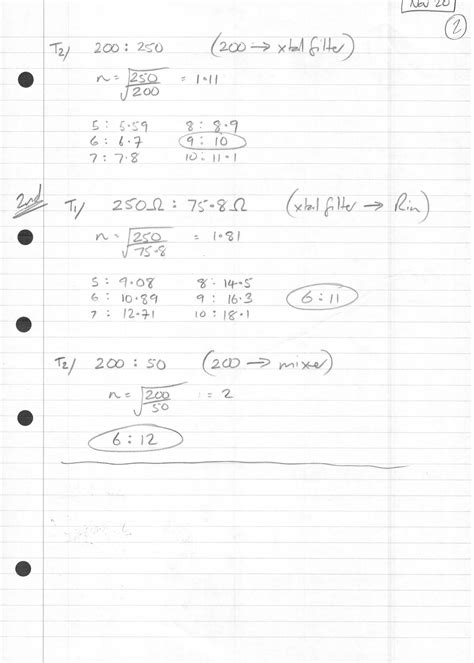 Nov 20
2
T2/ 200 : 250 (200 → xtal filter)
n = √250/√200 = 1.11
5 : 5.59 8 : 8.9
6 : 6.7 9 : 10
7 : 7.8 10 : 11.1
2nd T1/ 250Ω : 75.8Ω (xtal filter → Rin)
n = √250/√75.8 = 1.81
5 : 9.08 8 : 14.5
6 : 10.89 9 : 16.3 6 : 11
7 : 12.71 10 : 18.1
T2/ 200 : 50 (200 → mixer)
n = √200/√50 := 2
6 : 12